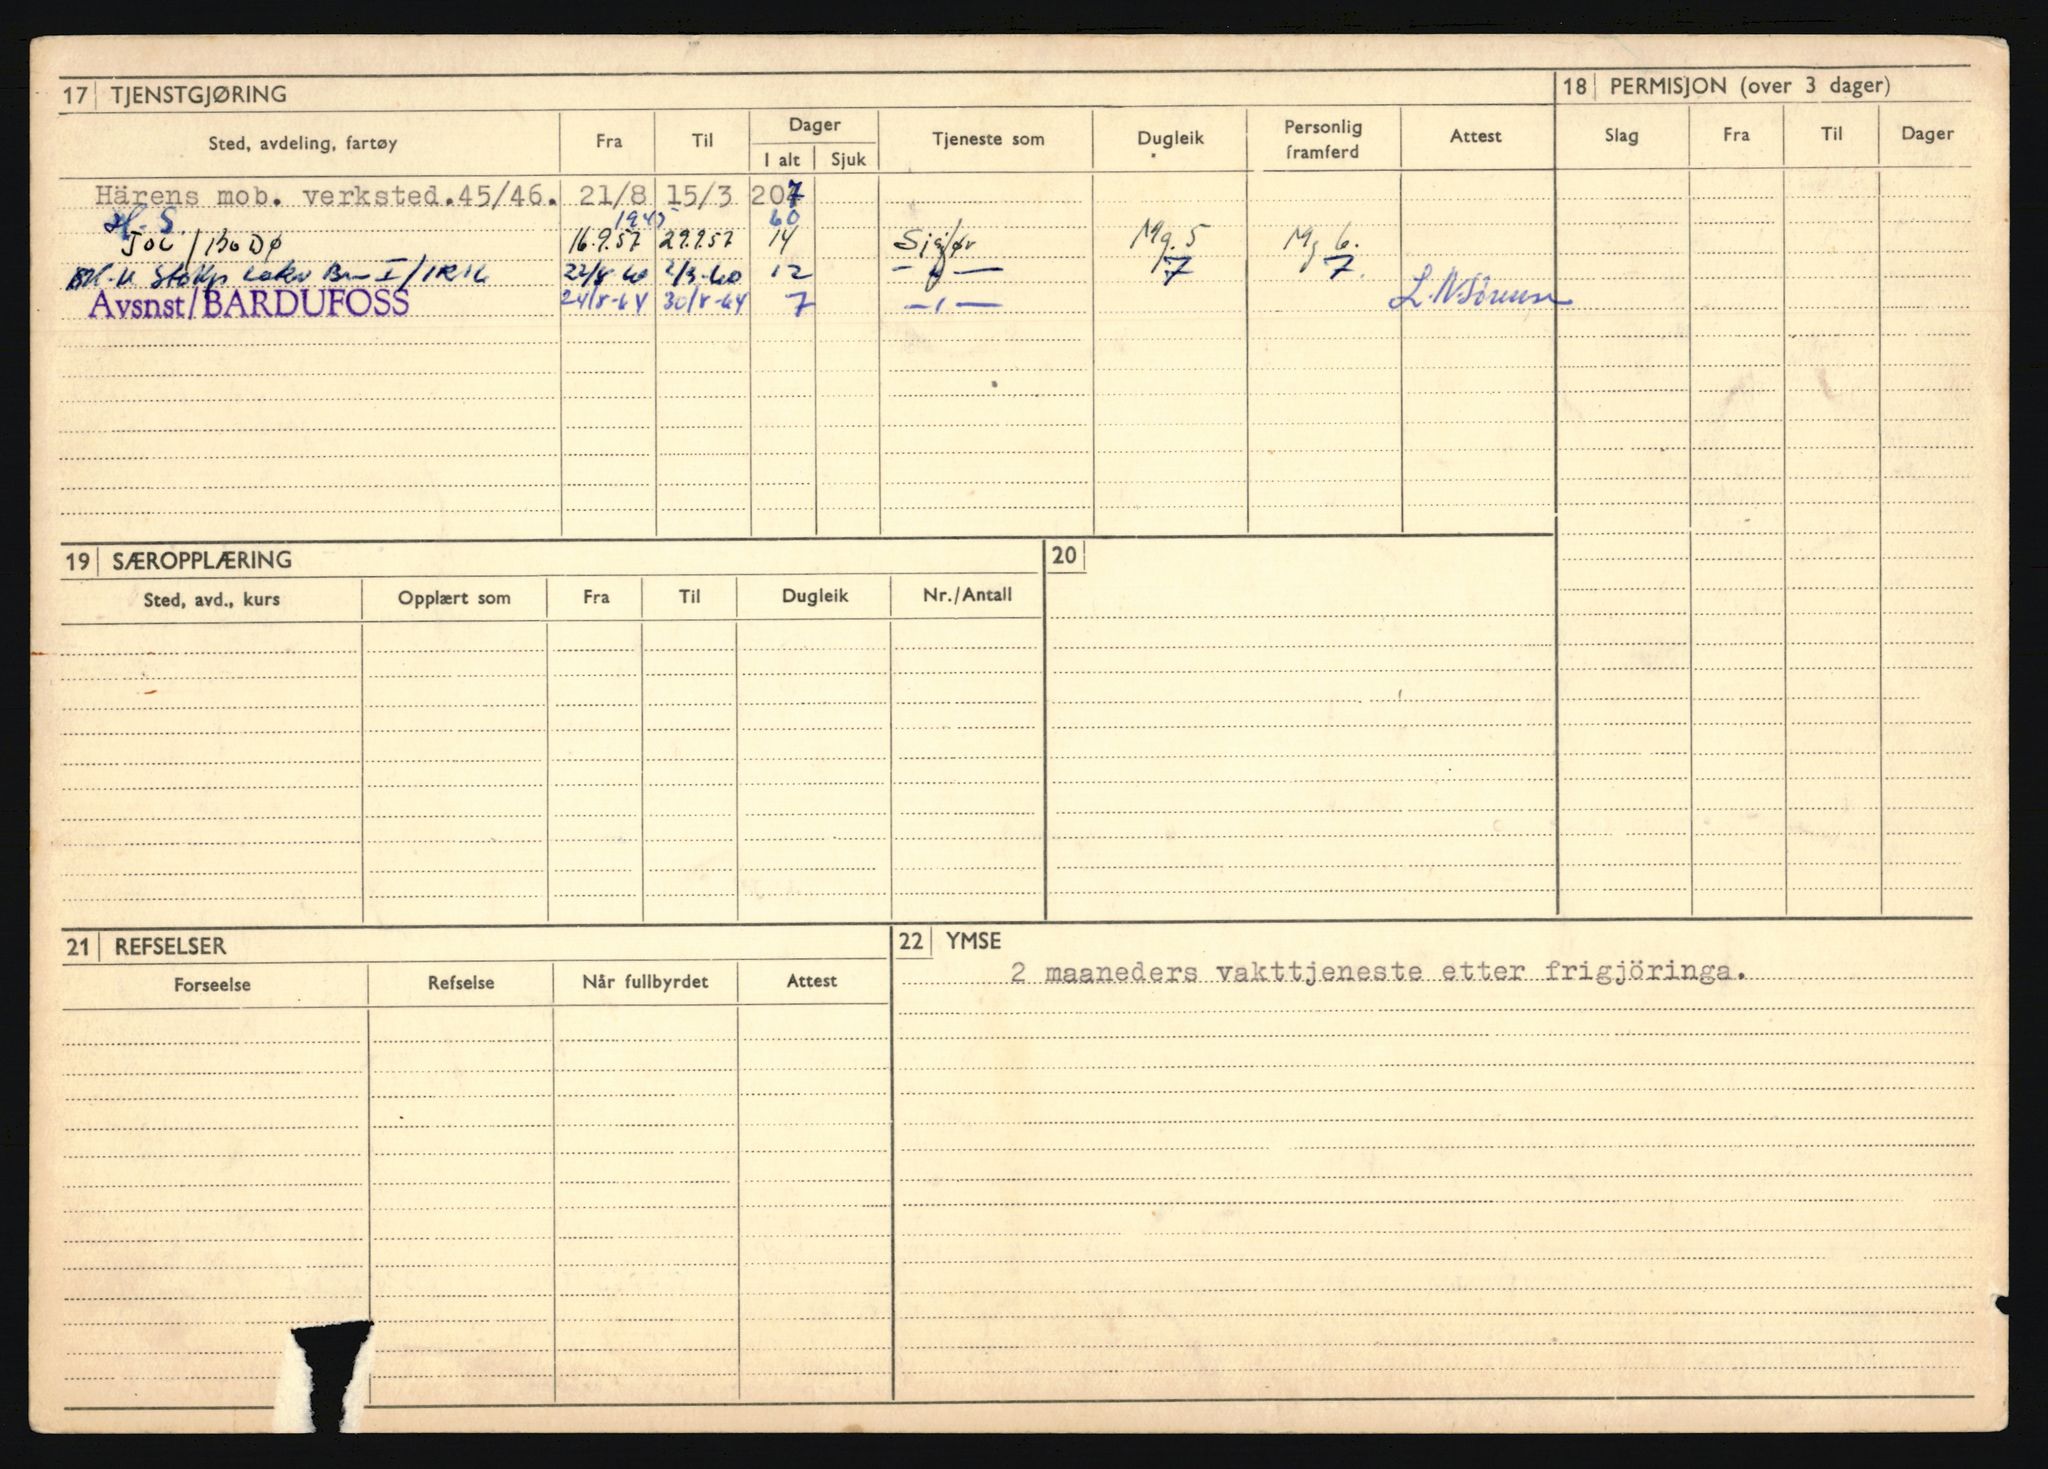 17 TJENSTGJØRING 18 PERMISJON (over 3 dager)
Sted, avdeling, fartøy Fra Til Dager Tjeneste som Dugleik Personlig framferd Attest Slag Fra Til Dager
I alt Sjuk
Härens mob. verksted.45/46. 21/8 15/3 207
H.S. 1945 60
JOC/BODØ 16.9.57 29.9.57 14 Sjåfør Mg. 5 Mg 6.
22/8-60 2/9-60 12 — " — 7 7.
Avsnst/BARDUFOSS 24/8-64 30/8-64 7 — " —
19 SÆROPPLÆRING 20
Sted, avd., kurs Opplært som Fra Til Dugleik Nr./Antall
21 REFSELSER 22 YMSE
Forseelse Refselse Når fullbyrdet Attest
2 maaneders vakttjeneste etter frigjöringa.